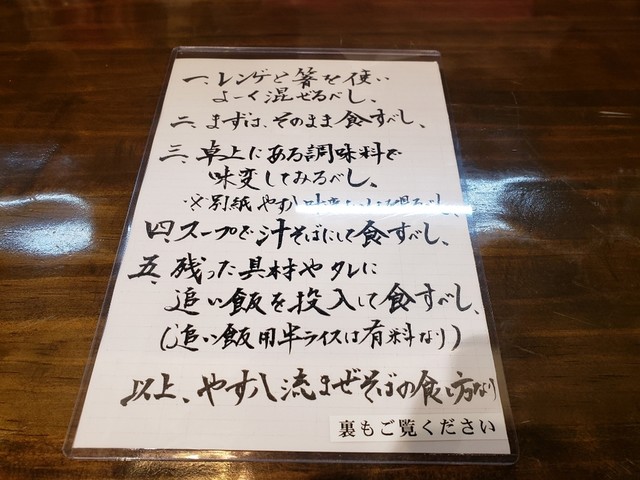 一、レンゲと箸を使い
よーく混ぜるべし、
二、まずは、そのまま食すべし、
三、卓上にある調味料で
味変してみるべし、
※別紙やす八味変
四、スープで汁そばにして食すべし、
五、残った具材やタレに
追い飯を投入して食すべし、
(追い飯用半ライスは有料なり)
以上、やす八流まぜそばの食し方なり
裏もご覧ください